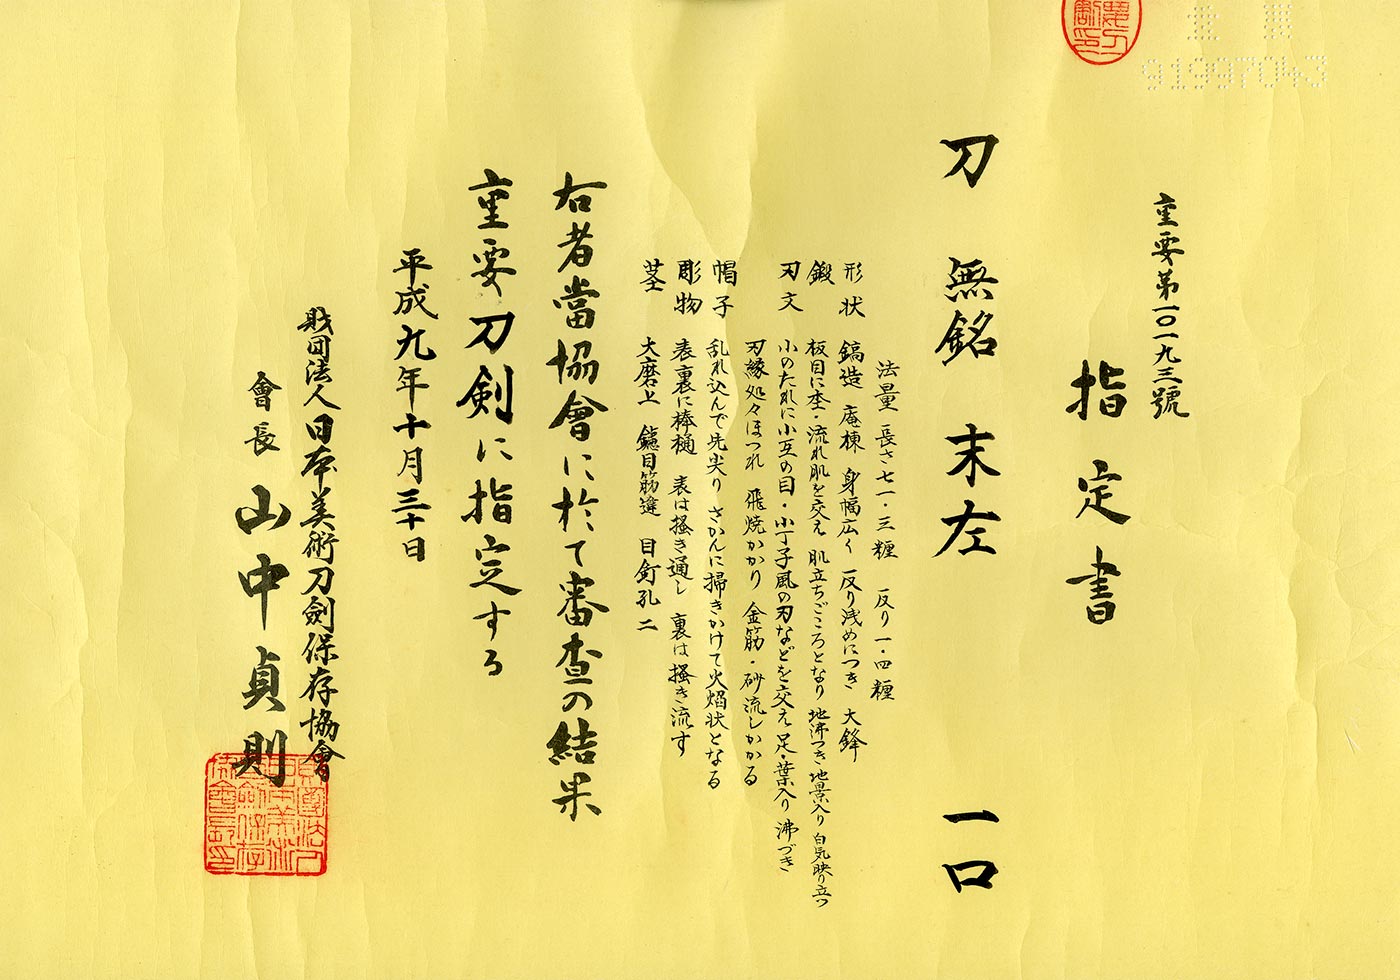 重要第一〇一九三號
指定書
刀 無銘 末左 一口
法量 長さ七一・三糎 反り一・四糎
形状 鎬造 庵棟 身幅広く 反り浅めにつき 大鋒
鍛 板目に杢・流れ肌を交え 肌立ちごころとなり 地沸つき 地景入り 白気映り立つ
刃文 小のたれに小互の目・小丁子風の刃などを交え 足・葉入り 沸づき
刃縁処々ほつれ 飛焼かかり 金筋・砂流しかかる
帽子 乱れ込んで先尖り さかんに掃きかけて火焰状となる
彫物 表裏に棒樋 表は掻き通し 裏は掻き流す
茎 大磨上 鑢目筋違 目釘孔二
右者當協會に於て審査の結果
重要刀剣に指定する
平成九年十月三十日
財団法人日本美術刀劍保存協會
會長 山中貞則
91997043